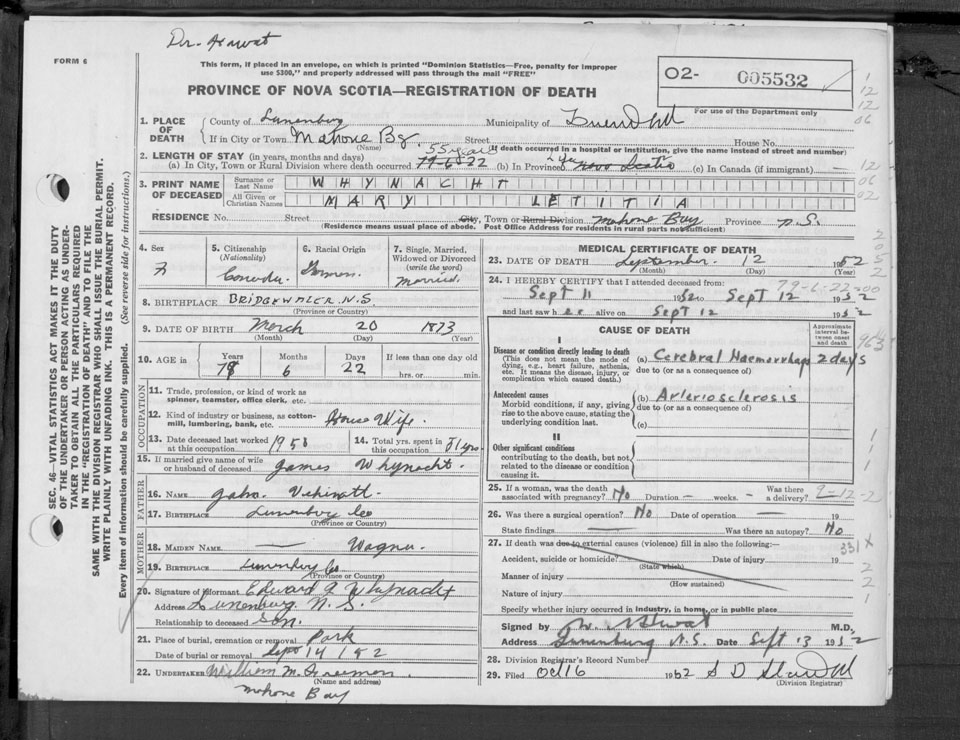 Dr.
FORM 6
This form, if placed in an envelope, on which is printed "Dominion Statistics—Free, penalty for improper
use $300," and properly addressed will pass through the mail "FREE"
PROVINCE OF NOVA SCOTIA—REGISTRATION OF DEATH
O2- 005532
For use of the Department only
1. PLACE OF DEATH
County of Lunenburg Municipality of
If in City or Town Mahone By. Street House No.
(Name) (If death occurred in a hospital or institution, give the name instead of street and number)
2. LENGTH OF STAY (in years, months and days) 55 years
(a) In City, Town or Rural Division where death occurred 79-6-22 (b) In Province Nova Scotia (c) In Canada (if immigrant) —
3. PRINT NAME OF DECEASED
Surname or Last Name WHYNACHT
All Given or Christian Names MARY LETITIA
RESIDENCE No. Street City, Town or Rural Division Mahone Bay Province N.S.
(Residence means usual place of abode. Post Office Address for residents in rural parts not sufficient)
4. Sex F
5. Citizenship (Nationality) Canada
6. Racial Origin
7. Single, Married, Widowed or Divorced (write the word) Married
8. BIRTHPLACE BRIDGEWATER N.S.
(Province or Country)
9. DATE OF BIRTH March 20 1873
(Month) (Day) (Year)
10. AGE in Years Months 6 Days 22 If less than one day old
hrs. or min.
OCCUPATION
11. Trade, profession, or kind of work as
spinner, teamster, office clerk, etc.
12. Kind of industry or business, as cotton-
mill, lumbering, bank, etc. House Wife.
13. Date deceased last worked
at this occupation 1950
14. Total yrs. spent in
this occupation 51 yrs
15. If married give name of wife
or husband of deceased James Whynacht.
FATHER
16. NAME John
17. BIRTHPLACE Lunenburg Co
(Province or Country)
MOTHER
18. MAIDEN NAME — Wagner.
19. BIRTHPLACE Lunenburg Co
(Province or Country)
20. Signature of informant Edward J Whynacht
Address Lunenburg. N.S.
Relationship to deceased Son.
21. Place of burial, cremation or removal Park
Date of burial or removal Sept 14/52
22. UNDERTAKER William M. Freeman.
(Name and address)
Mahone Bay
MEDICAL CERTIFICATE OF DEATH
23. DATE OF DEATH September 12 1952
(Month) (Day) (Year)
24. I HEREBY CERTIFY that I attended deceased from: 79-6-22-00
Sept 11 1952 to Sept 12 1952
and last saw her alive on Sept 12 1952
CAUSE OF DEATH
Approximate interval between onset and death
I
Disease or condition directly leading to death
(This does not mean the mode of
dying, e.g., heart failure, asthenia,
etc. It means the disease, injury, or
complication which caused death.)
(a) Cerebral Haemorrhage 2 days
due to (or as a consequence of)
Antecedent causes
Morbid conditions, if any, giving
rise to the above cause, stating the
underlying condition last.
(b) Arteriosclerosis
due to (or as a consequence of)
(c)
II
Other significant conditions
contributing to the death, but not
related to the disease or condition
causing it.
25. If a woman, was the death
associated with pregnancy? No Duration — weeks. — Was there a delivery?
26. Was there a surgical operation? No Date of operation — 19
State findings — Was there an autopsy? No
27. If death was due to external causes (violence) fill in also the following:—
Accident, suicide or homicide? Date of injury 19
(State which)
Manner of injury
(How sustained)
Nature of injury
Specify whether injury occurred in industry, in home, or in public place
Signed by M.D.
Address Lunenburg N.S. Date Sept 13 1952
28. Division Registrar's Record Number
29. Filed Oct 16 1952
(Division Registrar)
331 x
SEC. 46—VITAL STATISTICS ACT MAKES IT THE DUTY
OF THE UNDERTAKER OR PERSON ACTING AS UNDER-
TAKER TO OBTAIN ALL THE PARTICULARS REQUIRED
IN THE "REGISTRATION OF DEATH" AND TO FILE THE
SAME WITH THE DIVISION REGISTRAR WHO SHALL ISSUE THE BURIAL PERMIT.
WRITE PLAINLY WITH UNFADING INK. THIS IS A PERMANENT RECORD.
Every item of information should be carefully supplied. (See reverse side for instructions.)